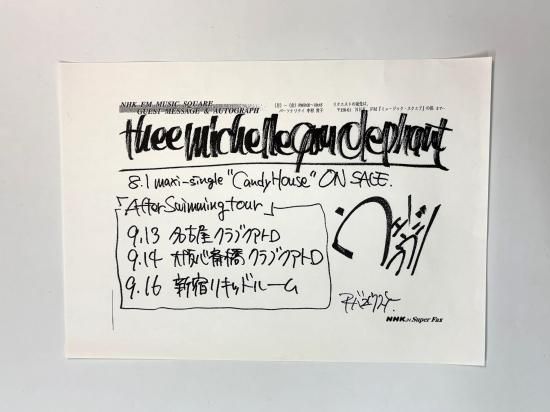 NHK FM MUSIC SQUARE
GUEST MESSAGE & AUTOGRAPH
thee michelle gun elephant
8.1 maxi-single "Candy House" ON SALE.
「After Swimming tour」
9.13 名古屋クラブクアトロ
9.14 大阪心斎橋クラブクアトロ
9.16 新宿リキッドルーム
NHK Super Fax